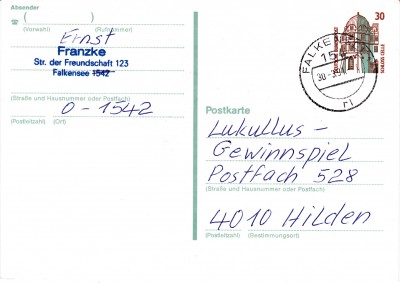 Absender
(          )
(Vorwahl) (Rufnummer)
Ernst
Franzke
Str. der Freundschaft 123
Falkensee 1542
(Straße und Hausnummer oder Postfach)
O-1542
(Postleitzahl) (Ort)
30
SCHLOSS CELLE
FALKENSEE
ri
Postkarte
Lukullus-
Gewinnspiel
Postfach 528
(Straße und Hausnummer oder Postfach)
4010 Hilden
(Postleitzahl) (Bestimmungsort)